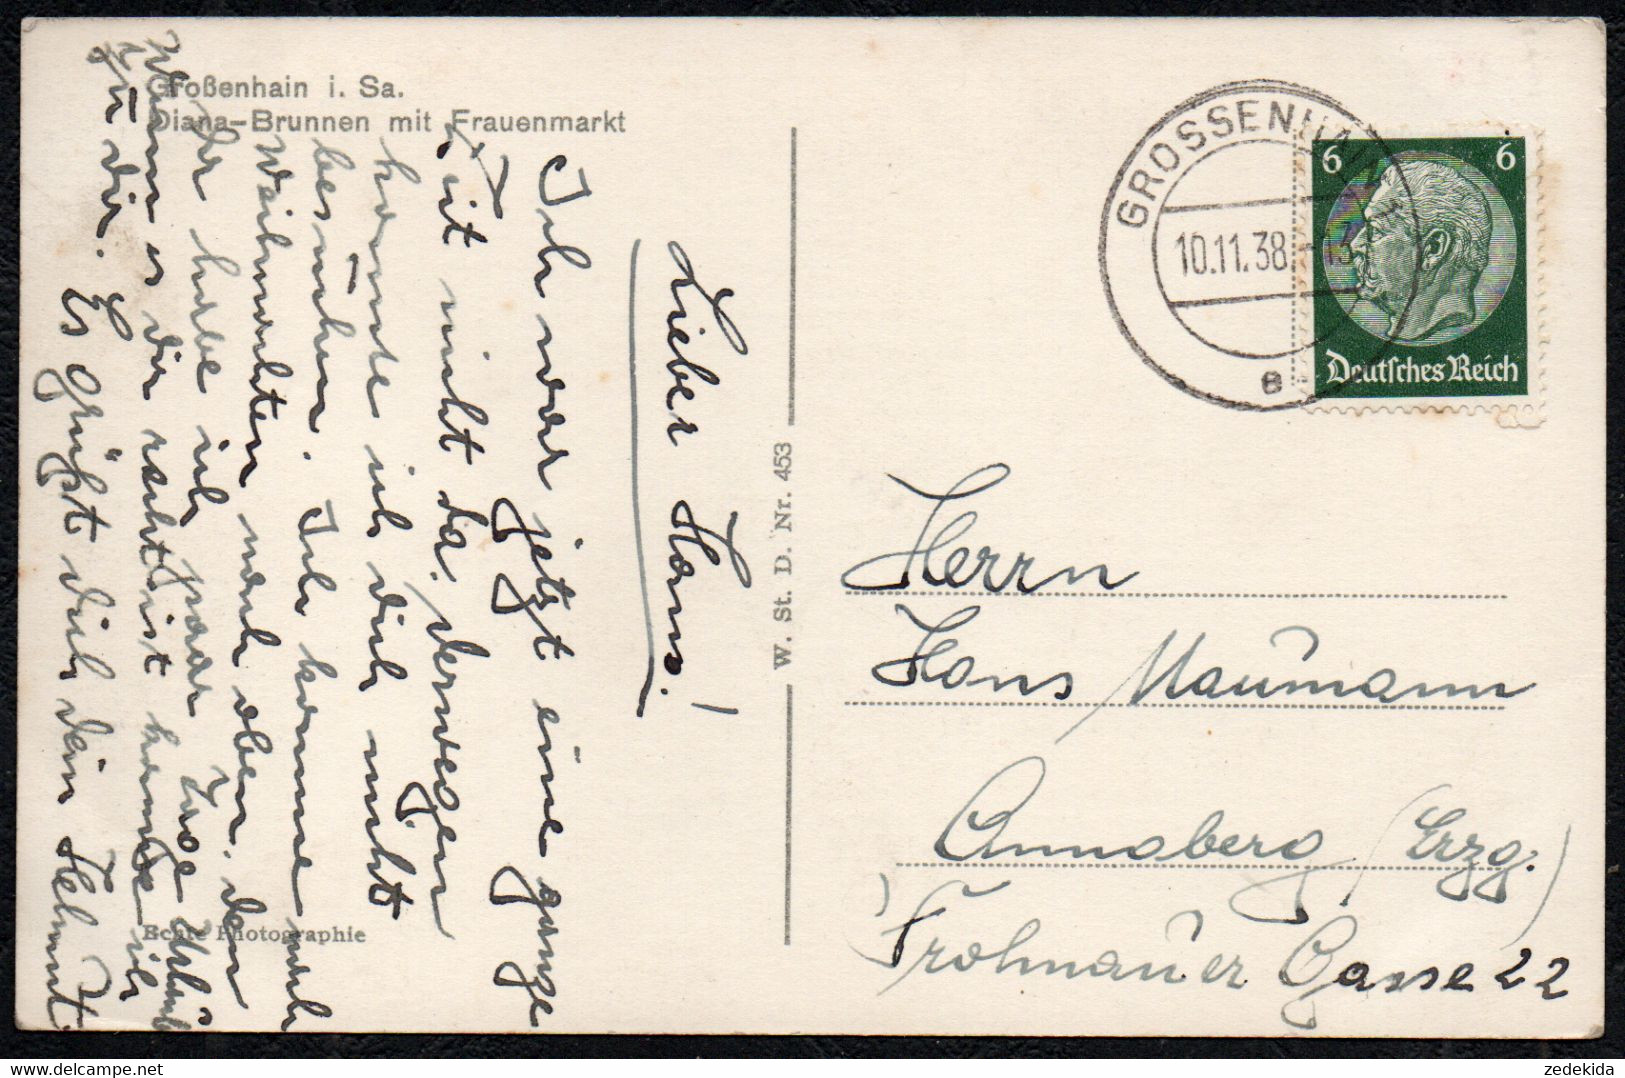 Großenhain i. Sa.
Diana-Brunnen mit Frauenmarkt
Lieber Hans!
Ich war jetzt eine ganze
Zeit nicht da, deswegen
konnte ich dich nicht
besuchen. Ich komme nach
Weihnachten nach oben, dan
habe ich paar Tage Urlaub
Wenn es dir recht ist komme ich
zu dir. Es grüßt dich dein Helmut.
Echte Photographie
W. St. D. Nr. 453
GROSSENHAIN
10.11.38
e
6 6
Deutsches Reich
Herrn
Hans Naumann
Annaberg (Erzg.)
Frohnauer Gasse 22
zedekida